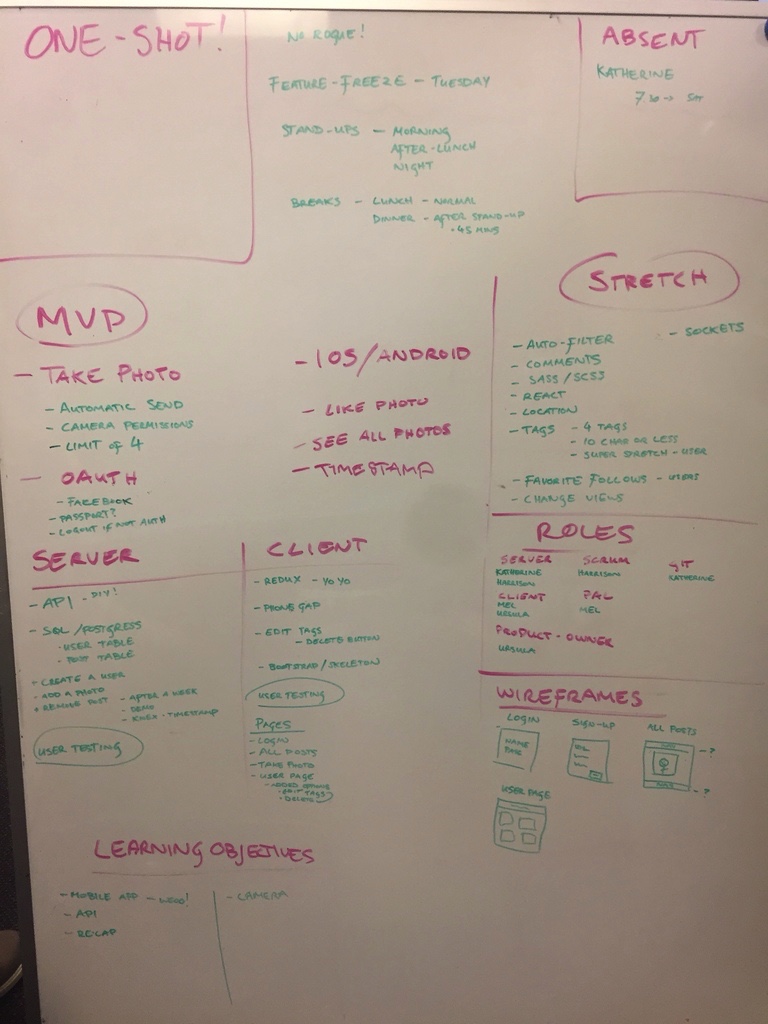 ONE-SHOT!
NO ROGUE!
FEATURE-FREEZE - TUESDAY
STAND-UPS - MORNING
AFTER-LUNCH
NIGHT
BREAKS - LUNCH - NORMAL
DINNER - AFTER STAND-UP
- 45 MINS
ABSENT
KATHERINE
7:30 → SAT
MVP
- TAKE PHOTO
- AUTOMATIC SEND
- CAMERA PERMISSIONS
- LIMIT of 4
- OAUTH
- FACEBOOK
- PASSPORT?
- LOGOUT IF NOT AUTH
- IOS/ANDROID
- LIKE PHOTO
- SEE ALL PHOTOS
- TIMESTAMP
STRETCH
- AUTO-FILTER
- COMMENTS
- SASS/SCSS
- REACT
- LOCATION
- TAGS - 4 TAGS
- 10 CHAR OR LESS
- SUPER STRETCH - USER
- FAVORITE FOLLOWS - USERS
- CHANGE VIEWS
- SOCKETS
SERVER
- API - DIY!
- SQL/POSTGRESS
- USER TABLE
- POST TABLE
- CREATE A USER
- ADD A PHOTO
- REMOVE POST - AFTER A WEEK
- DEMO
- KNEX - TIMESTAMP
USER TESTING
CLIENT
- REDUX - YO YO
- PHONE GAP
- EDIT TAGS
- DELETE BUTTON
- BOOTSTRAP/SKELETON
USER TESTING
PAGES
- LOGIN
- ALL POSTS
- TAKE PHOTO
- USER PAGE
- ADDED OPTIONS
- EDIT TAGS
- DELETE
ROLES
SERVER
KATHERINE
HARRISON
SCRUM
HARRISON
GIT
KATHERINE
CLIENT
MEL
URSULA
PAL
MEL
PRODUCT-OWNER
URSULA
WIREFRAMES
LOGIN
NAME
PASS
SIGN-UP
ALL POSTS
- ?
- ?
USER PAGE
LEARNING OBJETIVES
- MOBILE APP - WOO!
- API
- RECAP
- CAMERA